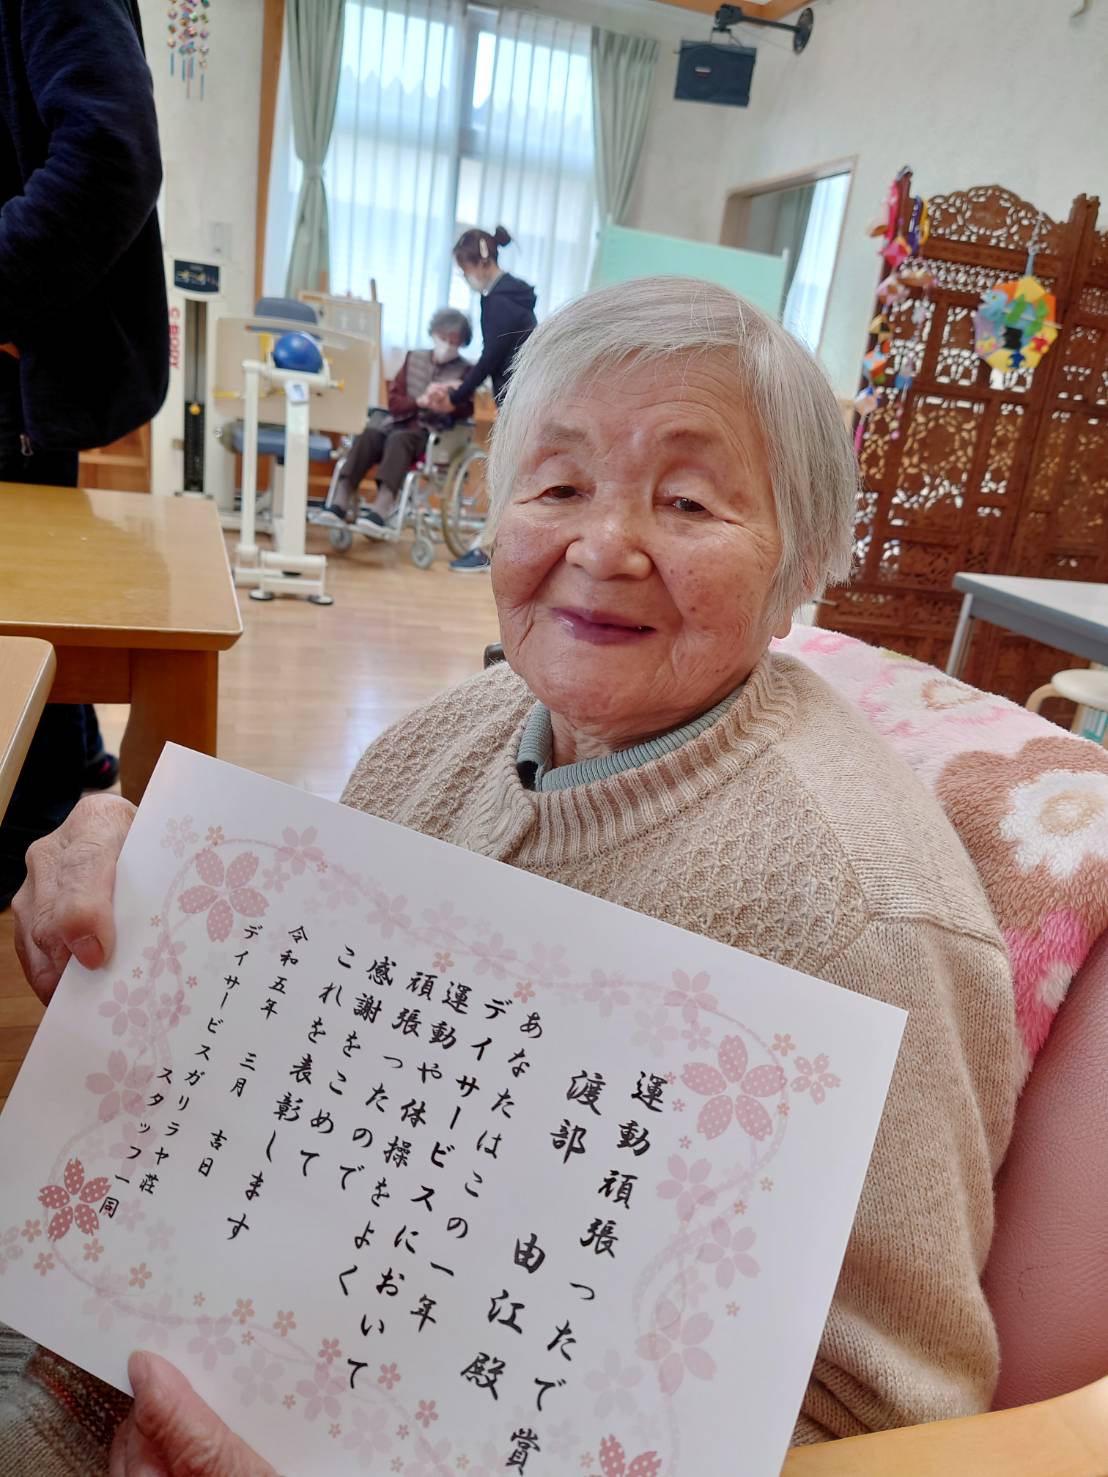 運動頑張ったで賞
渡部 由江 殿
あなたはこの一年
デイサービスにおいて
運動や体操をよく
頑張ったので
感謝をこめて
これを表彰します
令和五年 三月 吉日
デイサービスガリラヤ荘
スタッフ一同
C-BODY